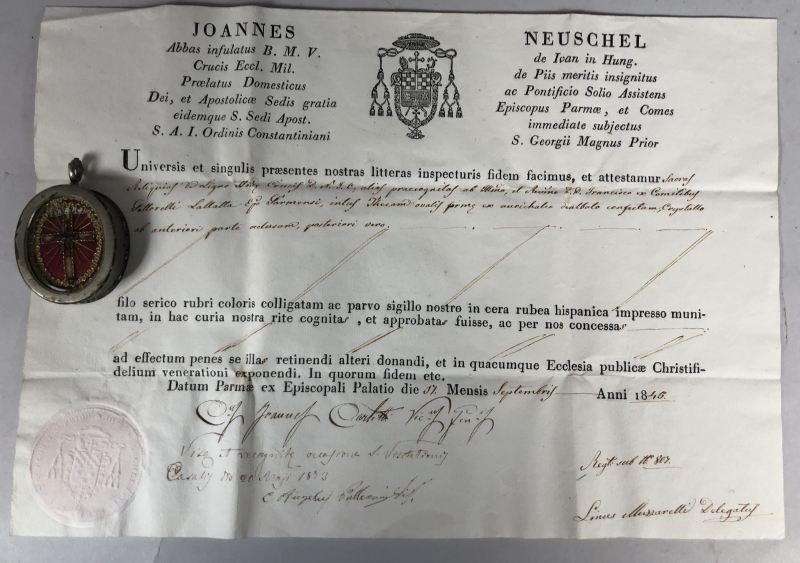 JOANNES
Abbas infulatus B. M. V.
Crucis Eccl. Mil.
Prælatus Domesticus
Dei, et Apostolicæ Sedis gratia
eidemque S. Sedi Apost.
S. A. I. Ordinis Constantiniani
NEUSCHEL
de Ioan in Hung.
de Piis meritis insignitus
ac Pontificio Solio Assistens
Episcopus Parmæ, et Comes
immediate subjectus
S. Georgii Magnus Prior
Universis et singulis præsentes nostras litteras inspecturis fidem facimus, et attestamur Sacras
Reliquias ex Ligno D. N. J. C. alias praecognitas ab Francisco ex Comitibus
Parmensi, intus Thecam ovalis formæ ex aurichalco dealbato confectam, Crystallo
ab anteriori parte oclusam, posteriori vero
filo serico rubri coloris colligatam ac parvo sigillo nostro in cera rubea hispanica impresso muni-
tam, in hac curia nostra rite cognitas, et approbatas fuisse, ac per nos concessas
ad effectum penes se illas retinendi alteri donandi, et in quacumque Ecclesia publicæ Christifi-
delium venerationi exponendi. In quorum fidem etc.
Datum Parmæ ex Episcopali Palatio die 17. Mensis Septembris Anni 1846.
Joannes Vicus Genlis
Visa et recognita occasione S. Visitationis
Casalis 1873
Regt. sub N. 807.
Linus Mussarelli Delegatus